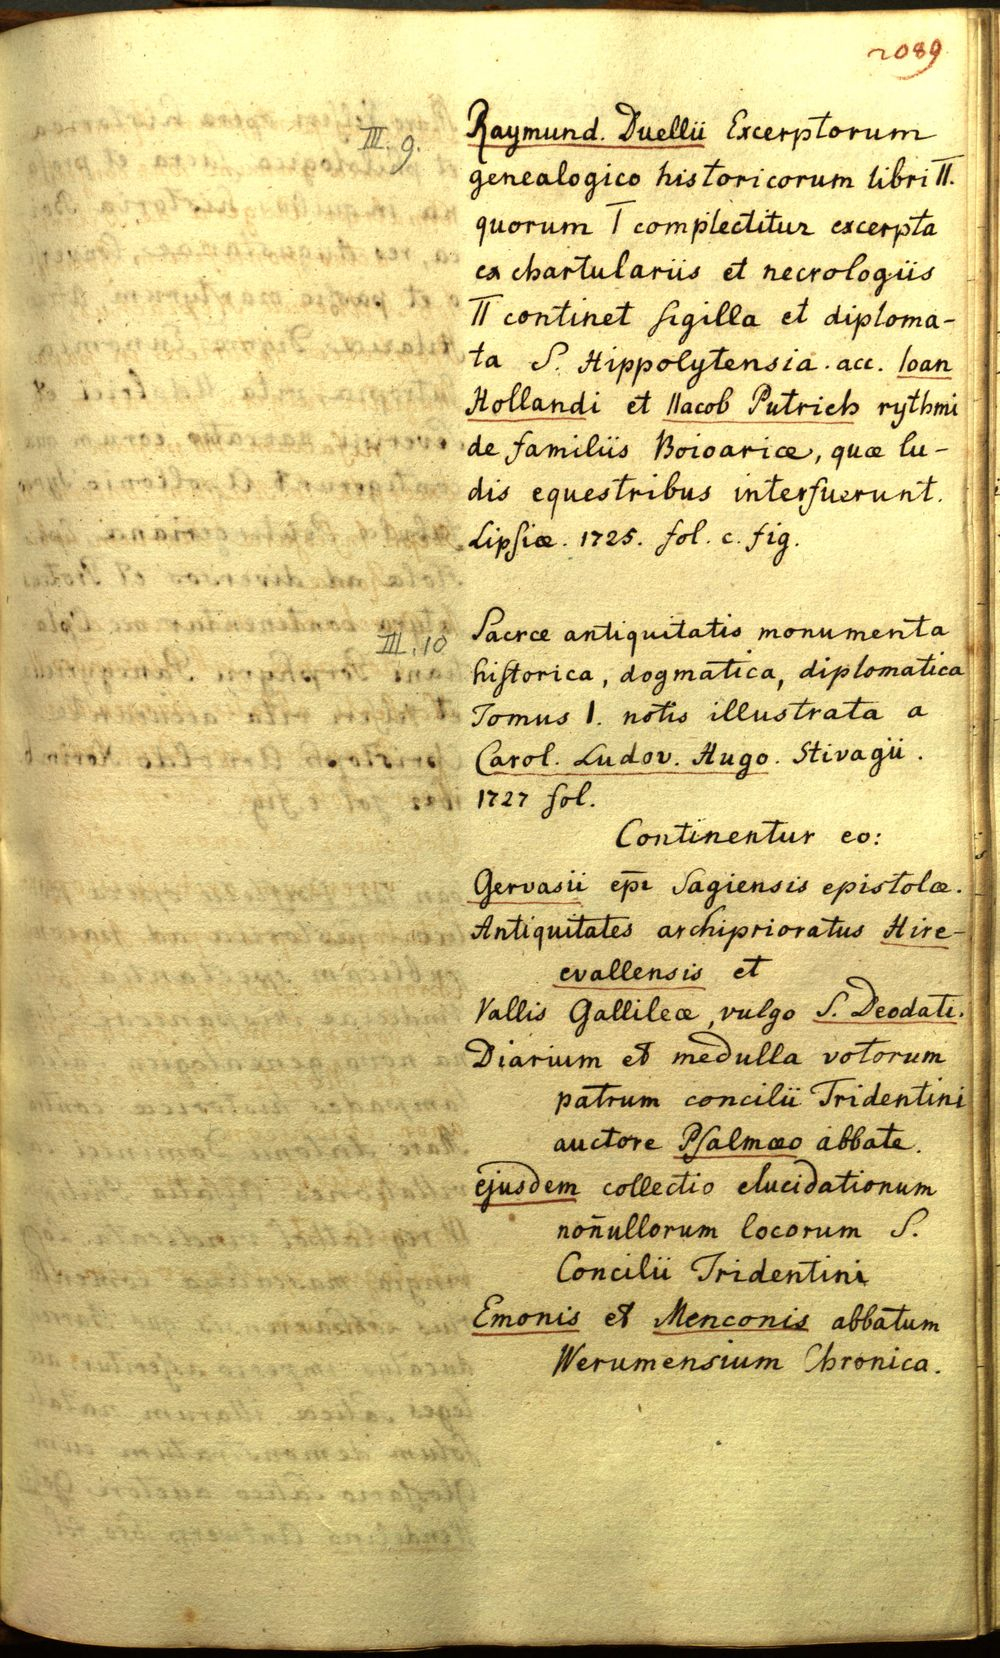 2089
III. 9.
Raymund. Duellii Excerptorum
genealogico historicorum libri II.
quorum I complectitur excerpta
ex chartulariis et necrologiis
II continet sigilla et diploma-
ta S. Hippolytensia. acc. Ioan
Hollandi et Iacob Putrich rythmi
de familiis Boioaricæ, quæ lu-
dis equestribus interfuerunt.
Lipsiæ. 1725. fol. c. fig.
III. 10
Sacræ antiquitatis monumenta
historica, dogmatica, diplomatica
Tomus I. notis illustrata a
Carol. Ludov. Hugo. Stivagii.
1727 fol.
Continentur eo:
Gervasii epi Sagiensis epistolæ.
Antiquitates archiprioratus Hire-
evallensis et
Vallis Gallileæ, vulgo S. Deodati.
Diarium et medulla votorum
patrum concilii Tridentini
auctore Psalmæo abbate.
ejusdem collectio elucidationum
non̄ullorum locorum S.
Concilii Tridentini
Emonis et Menconis abbatum
Werumensium Chronica.